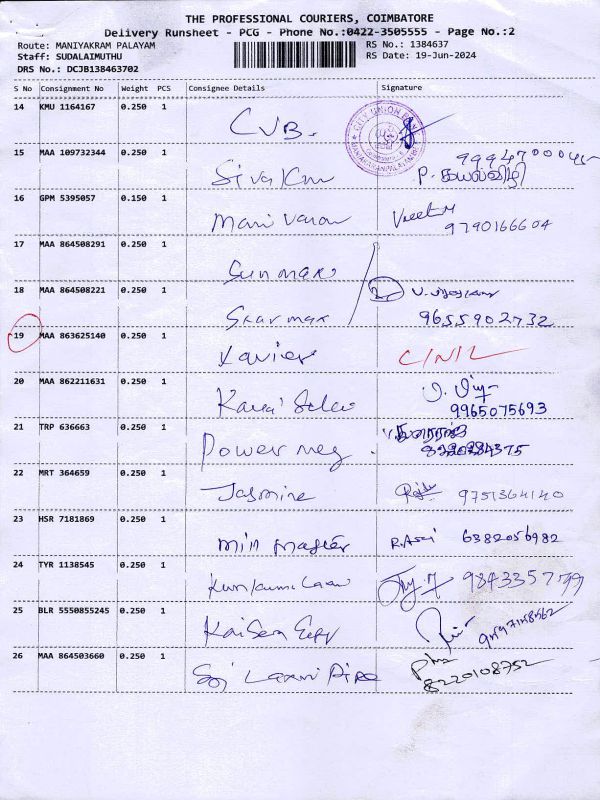 THE PROFESSIONAL COURIERS, COIMBATORE
Delivery Runsheet - PCG - Phone No.:0422-3505555 - Page No.:2
Route: MANIYAKRAM PALAYAM RS No.: 1384637
Staff: SUDALAIMUTHU RS Date: 19-Jun-2024
DRS No.: DCJB138463702
S No Consignment No Weight PCS Consignee Details Signature
14 KMU 1164167 0.250 1
CUB. CITY UNION BANK
15 MAA 109732344 0.250 1
Siva Km P. கயல்விழி
16 GPM 5395057 0.150 1
Mani Varan 9790166604
17 MAA 864508291 0.250 1
Sun max
18 MAA 864508221 0.250 1
Star max 9655902732
19 MAA 863625140 0.250 1
Xavier C/N/L
20 MAA 862211631 0.250 1
9965075693
21 TRP 636663 0.250 1
Power
22 MRT 364659 0.250 1
Jasmine 9751364140
23 HSR 7181869 0.250 1
Mill Master 6382056982
24 TYR 1138545 0.250 1
25 BLR 5550855245 0.250 1
26 MAA 864503660 0.250 1
Sri Laxmi Pipe 8220108752